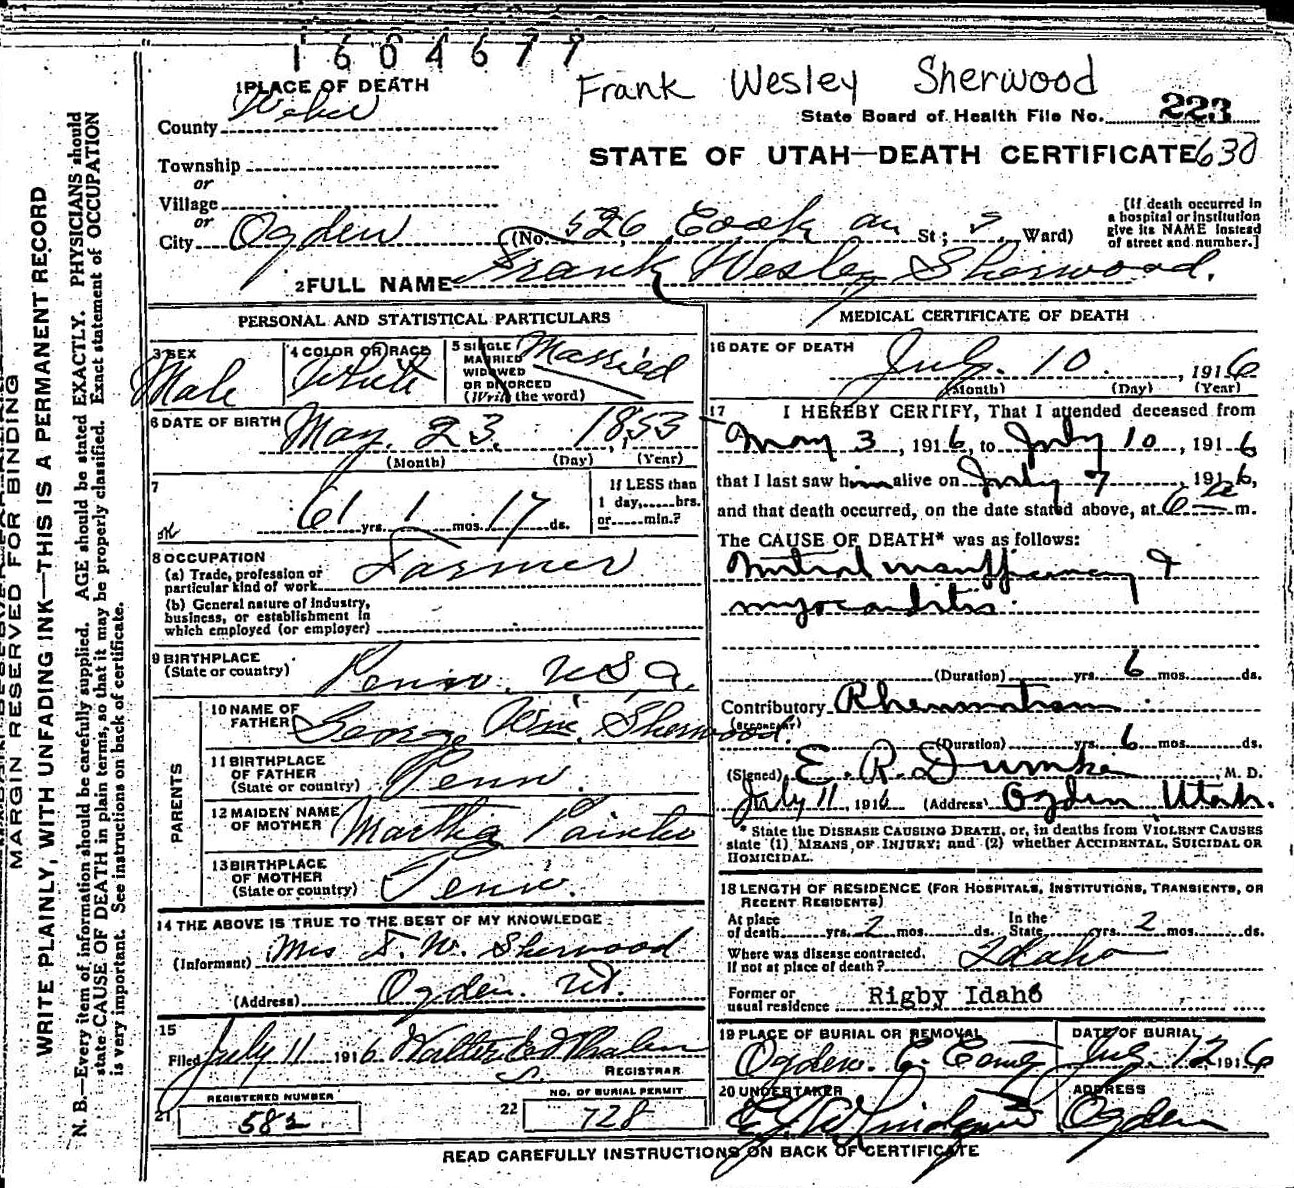 1604677
Frank Wesley Sherwood
1 PLACE OF DEATH
Weber
County
State Board of Health File No. 223
STATE OF UTAH—DEATH CERTIFICATE 630
Township
or
Village
or
City Ogden
(No. 526 Cook St; Ward)
[If death occurred in
a hospital or institution
give its NAME instead
of street and number.]
2 FULL NAME Frank Wesley Sherwood.
PERSONAL AND STATISTICAL PARTICULARS
3 SEX
Male
4 COLOR OR RACE
White
5 SINGLE
MARRIED
WIDOWED
OR DIVORCED
(Write the word)
Married
6 DATE OF BIRTH May. 23, 1853
(Month) (Day) (Year)
7
61 yrs. 1 mos. 17 ds.
If LESS than
1 day,.....hrs.
or.....min.?
8 OCCUPATION
(a) Trade, profession or
particular kind of work Farmer
(b) General nature of industry,
business, or establishment in
which employed (or employer)
9 BIRTHPLACE
(State or country) Penn. USA.
PARENTS
10 NAME OF
FATHER George Sherwood.
11 BIRTHPLACE
OF FATHER
(State or country) Penn.
12 MAIDEN NAME
OF MOTHER Martha Painter
13 BIRTHPLACE
OF MOTHER
(State or country) Penn.
14 THE ABOVE IS TRUE TO THE BEST OF MY KNOWLEDGE
(Informant) Mrs F. W. Sherwood
(Address) Ogden. Ut.
15
Filed July 11 1916 Walter Whalen
REGISTRAR
REGISTERED NUMBER
21 582
NO. OF BURIAL PERMIT
22 728
MEDICAL CERTIFICATE OF DEATH
16 DATE OF DEATH
July. 10, 1916
(Month) (Day) (Year)
17 I HEREBY CERTIFY, That I attended deceased from
May 3, 1916, to July 10, 1916
that I last saw him alive on July 7, 1916,
and that death occurred, on the date stated above, at 6 a m.
The CAUSE OF DEATH* was as follows:
Mitral insufficiency &
myocarditis.
(Duration) yrs. 6 mos. ds.
Contributory Rheumatism
(SECONDARY)
(Duration) yrs. 6 mos. ds.
(Signed) E. R. Dumke, M. D.
July 11, 1916 (Address) Ogden Utah.
* State the DISEASE CAUSING DEATH, or, in deaths from VIOLENT CAUSES
state (1) MEANS OF INJURY; and (2) whether ACCIDENTAL, SUICIDAL OR
HOMICIDAL.
18 LENGTH OF RESIDENCE (FOR HOSPITALS, INSTITUTIONS, TRANSIENTS, OR
RECENT RESIDENTS)
At place
of death yrs. 2 mos. ds.
In the
State yrs. 2 mos. ds.
Where was disease contracted,
If not at place of death? Idaho
Former or
usual residence Rigby Idaho
19 PLACE OF BURIAL OR REMOVAL
Ogden. C. Cemy
DATE OF BURIAL
July. 12, 1916
20 UNDERTAKER
Lindquist
ADDRESS
Ogden
READ CAREFULLY INSTRUCTIONS ON BACK OF CERTIFICATE
MARGIN RESERVED FOR BINDING
WRITE PLAINLY, WITH UNFADING INK—THIS IS A PERMANENT RECORD
N. B.—Every item of information should be carefully supplied. AGE should be stated EXACTLY. PHYSICIANS should
state CAUSE OF DEATH in plain terms, so that it may be properly classified. Exact statement of OCCUPATION
is very important. See instructions on back of certificate.